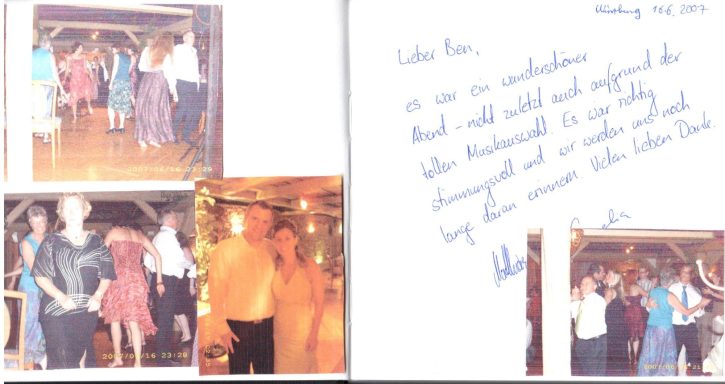 2007/06/16 23:29
2007/06/16 23:28
16.6.2007
Lieber Ben,
es war ein wunderschöner
Abend – nicht zuletzt auch aufgrund der
tollen Musikauswahl. Es war richtig
stimmungsvoll und wir werden uns noch
lange daran erinnern. Vielen lieben Dank.